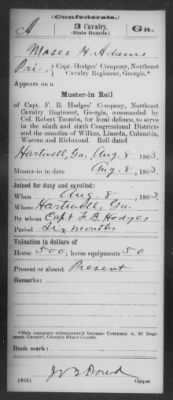 (Confederate.)
A 3 Cavalry. Ga.
(State Guards.)
Moses H. Adams
Pri., Capt. Hodges' Company, Northeast
Cavalry Regiment, Georgia.*
Appears on a
Muster-in Roll
of Capt. F. B. Hodges' Company, Northeast
Cavalry Regiment, Georgia, commanded by
Col. Robert Toombs, for local defense, to serve
in the ninth and sixth Congressional Districts
and the counties of Wilkes, Lincoln, Columbia,
Warren and Richmond. Roll dated
Hartwell, Ga. Aug. 8, 1863.
Muster-in to date Aug. 8, 1863.
Joined for duty and enrolled:
When Aug. 8, 1863.
Where Hartwell, Ga.
By whom Capt. F. B. Hodges
Period Six months
Valuation in dollars of
Horse 500, horse equipments 50
Present or absent Present
Remarks:
*This company subsequently became Company A, 3d Regiment
Cavalry, Georgia State Guards.
Book mark:
(635) Copyist.